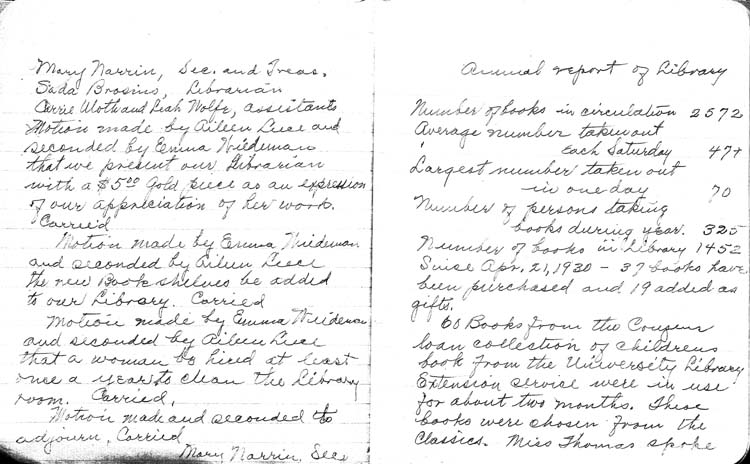 Mary Narrin, Sec. and Treas.
Sada Brosius, Librarian
Carrie Woth and Leah Wolfe, assistants
Motion made by Aileen Luce and
seconded by Emma Wiedeman
that we present our librarian
with a $5.00 Gold piece as an expression
of our appreciation of her work.
Carried
Motion made by Emma Wiedeman
and seconded by Aileen Luce
the new Book shelves be added
to our Library. Carried
Motion made by Emma Wiedeman
and seconded by Aileen Luce
that a woman be hired at least
once a year to clean the Library
room. Carried.
Motion made and seconded to
adjourn. Carried
Mary Narrin, Sec.
Annual report of Library
Number of books in circulation 2572
Average number taken out
Each Saturday 47+
Largest number taken out
in one day 70
Number of persons taking
books during year. 325
Number of books in Library 1452
Since Apr. 21, 1930 - 37 books have
been purchased and 19 added as
gifts.
60 Books from the Couzens
loan collection of childrens
book from the University Library
Extension service were in use
for about two months. These
books were chosen from the
Classics. Miss Thomas spoke